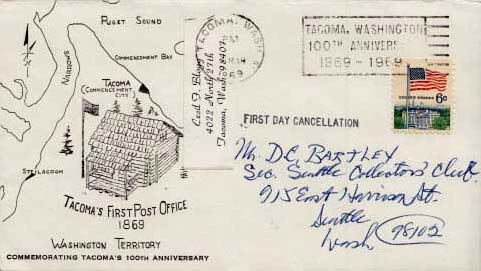 PUGET SOUND
NARROWS
COMMENCEMENT BAY
TACOMA
(COMMENCEMENT CITY)
STEILACOOM
TACOMA'S FIRST POST OFFICE
1869
WASHINGTON TERRITORY
COMMEMORATING TACOMA'S 100TH ANNIVERSARY
4022 North 27th
Tacoma, Wash. 98407
TACOMA, WASH.
PM
MAR
TACOMA, WASHINGTON
100TH ANNIVERS
1869 - 1969
UNITED STATES
6c
FIRST DAY CANCELLATION
Mr. D.C. BARTLEY
Sec. Seattle Collectors' Club
915 East Harrison St.
Seattle
Wash 98102